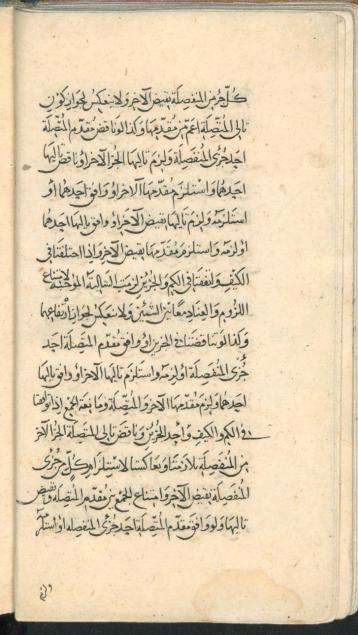 كل جزء من المنفصلة نقيض الآخر ولا ينعكس لجواز كون
تالي المتصلة اعم من مقدمها وكذا لو ناقض مقدم المتصلة
احد جزئي المنفصلة ولزم تاليها الجزء الآخر او ناقض تاليها
احدهما واستلزم مقدمها الآخر او وافق احدهما او
استلزمه ولزم تاليها نقيض الآخر او وافق تاليها احدهما
او لزمه واستلزم مقدمها نقيض الآخر واذا اختلفتا في
الكيف واتفقتا في الكم والجزئين لزمت السالبة الموجبة لامتناع
اللزوم والعناد معا بين الشيئين ولا ينعكس لجواز ارتفاعهما
وكذا لو تناقضتا في الجزئين او وافق مقدم المتصلة احد
جزئي المنفصلة او لزمه واستلزم تاليها الآخر او وافق تاليها
احدهما ولزم مقدمها الآخر والمتصلة ومانعة الجمع اذا توافقتا
في الكم والكيف واحد الجزئين وناقض تالي المتصلة الجزء الآخر
من المنفصلة تلازمتا وتعاكستا لاستلزام كل من جزئي
المنفصلة نقيض الآخر وامتناع الجمع بين مقدم المتصلة ونقيض
تاليها ولو وافق مقدم المتصلة احد جزئي المنفصلة او استلزمه